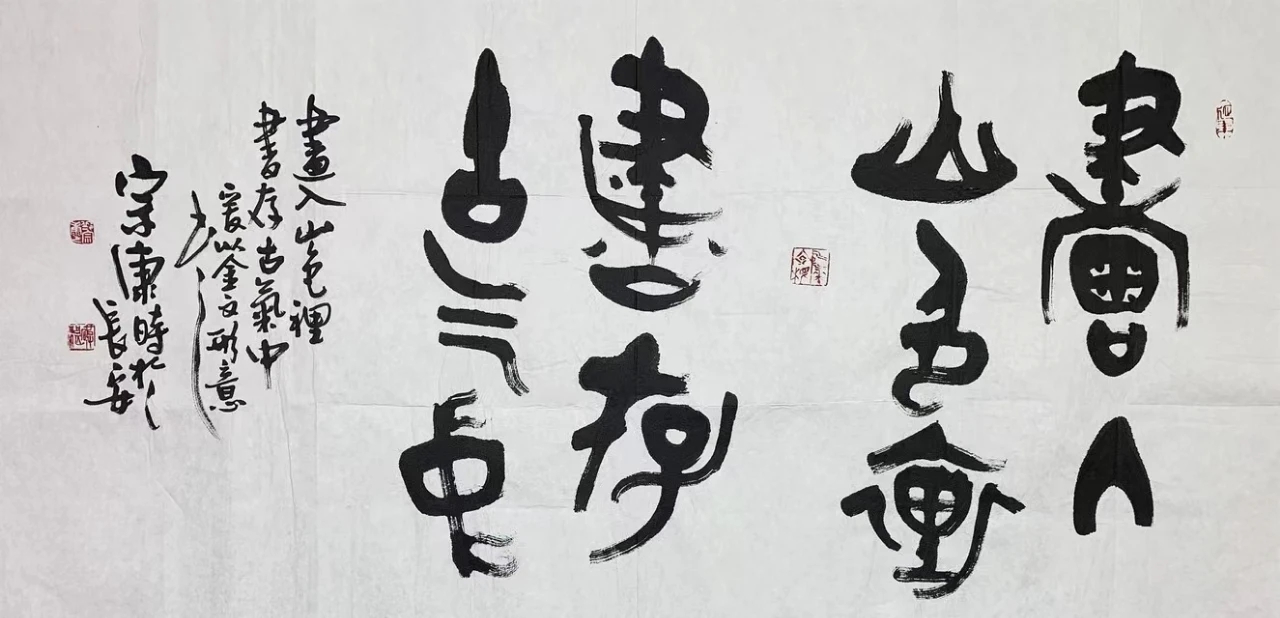 畫入
山色裏
書存
古气中
畫入山色裡
書存古氣中
爰以金文形意
宗康時於
長安